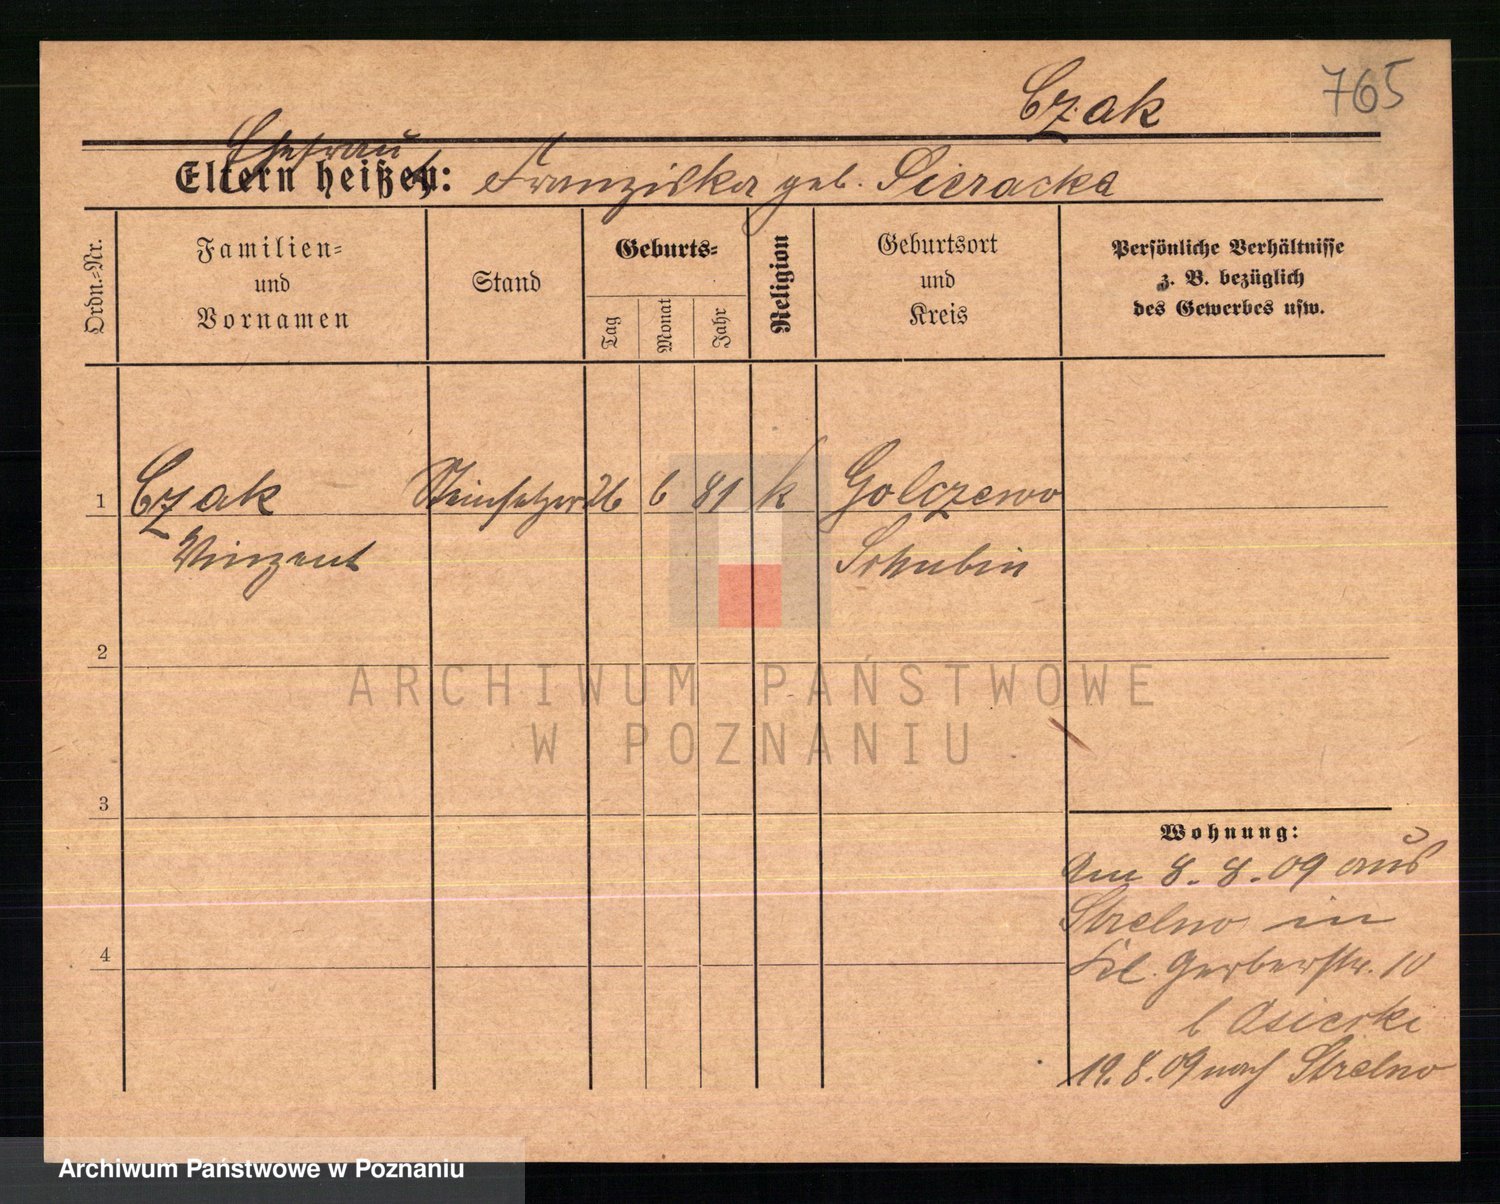 Czak
765
Ehefrau
Eltern heißen: Franziska geb. Sieracka
Ordn.=Nr.
Familien=
und
Vornamen
Stand
Geburts=
Tag
Monat
Jahr
Religion
Geburtsort
und
Kreis
Persönliche Verhältnisse
z. B. bezüglich
des Gewerbes usw.
1 Czak Steinsetzer 26 6 81 k Golczewo
Vinzent Schubin
2
3
4
Wohnung:
Am 8. 8. 09 aus
Strelno in
Kl. Gerberstr. 10
b Osierki
19. 8. 09 nach Strelno
ARCHIWUM PAŃSTWOWE
W POZNANIU
Archiwum Państwowe w Poznaniu